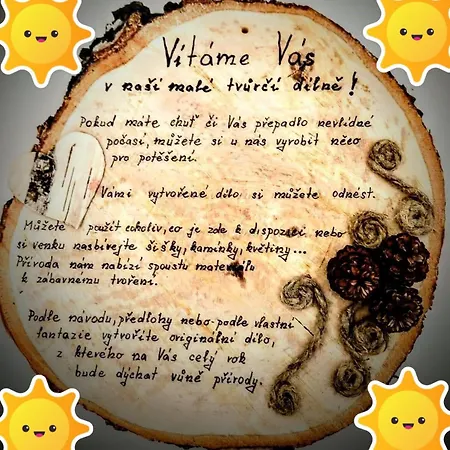 Vítáme Vás
v naší malé tvůrčí dílně!
Pokud máte chuť či Vás přepadlo nevlídné
počasí, můžete si u nás vyrobit něco
pro potěšení.
Vámi vytvořené dílo si můžete odnést.
Můžete použít cokoliv, co je zde k dispozici nebo
si venku nasbírejte šišky, kamínky, květiny...
Příroda nám nabízí spoustu materiálu
k zábavnému tvoření.
Podle návodu, předlohy nebo podle vlastní
fantazie vytvoříte originální dílo,
z kterého na Vás celý rok
bude dýchat vůně přírody.